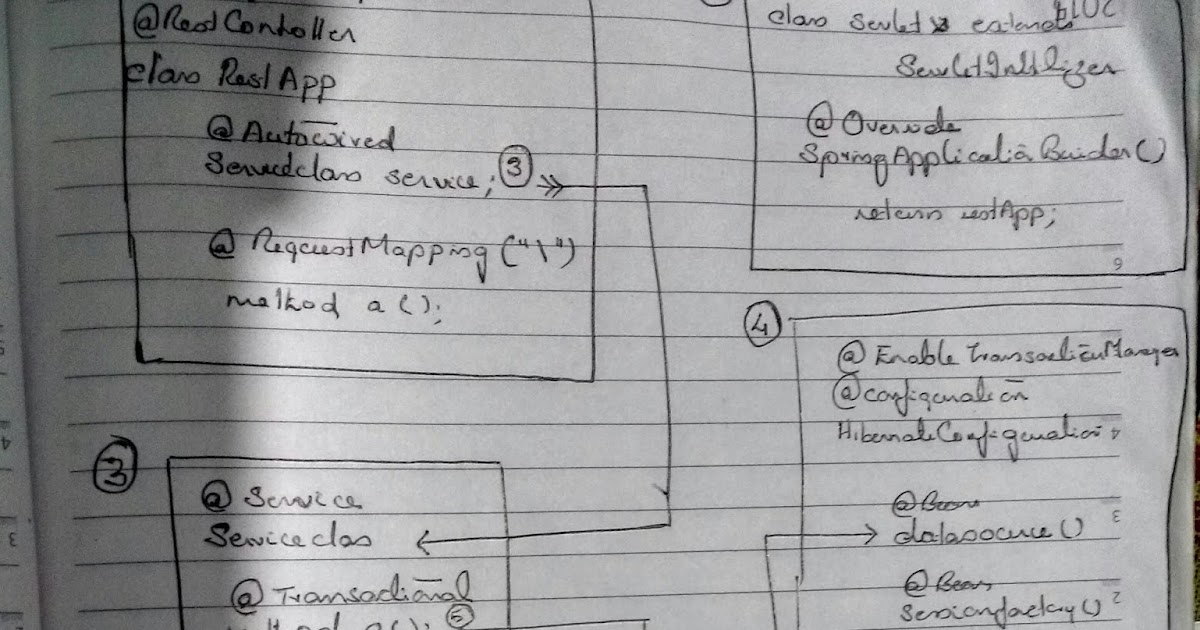 @RestContoller
class RestApp
@Autowired
Serviceclass service; ③
@ RequestMapping ("\")
method a();
class Servlet extends
ServletInitilizer
@ Override
SpringApplicationBuilder()
return restApp;
6
④
@ EnableTransactionManager
@configuration
HibernateConfiguration
4
@Bean
3
datasource()
@Bean
sessionfactory()
2
③
@ Service
Serviceclass
@ Transactional
a(); ⑤
4
3
2